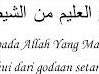 العليم من الشيط
ada Allah Yang Ma
ui dari godaan setan